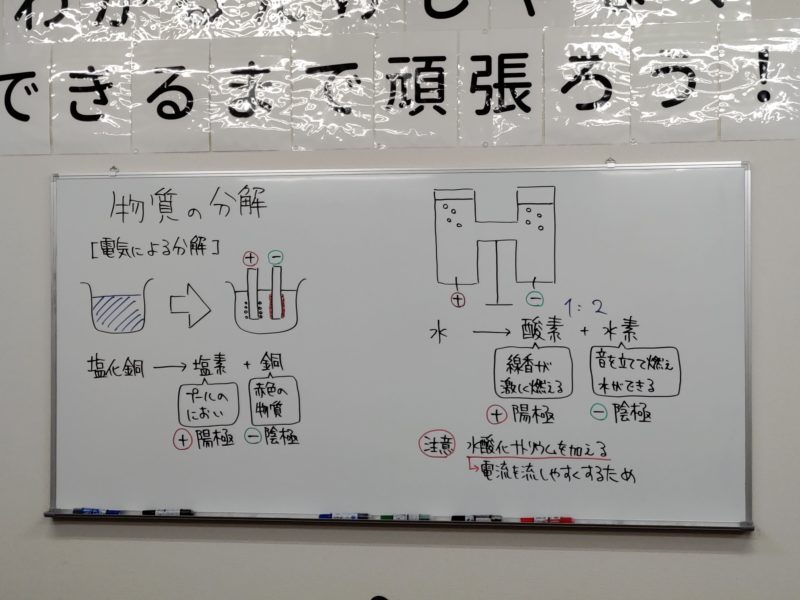 できるまで頑張ろう！
物質の分解
[電気による分解]
⊕ ⊖
塩化銅 → 塩素 + 銅
プールの
におい
赤色の
物質
⊕陽極 ⊖陰極
⊕ ⊖
1:2
水 → 酸素 + 水素
線香が
激しく燃える
音を立てて燃え
水ができる
⊕陽極 ⊖陰極
注意 水酸化ナトリウムを加える
→電流を流しやすくするため